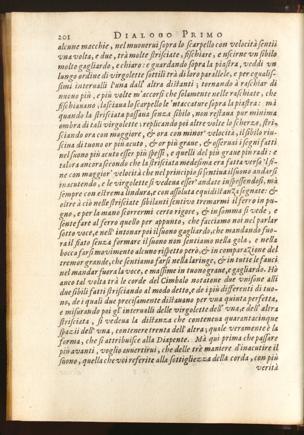 201 DIALOGO PRIMO
alcune macchie, nel muouerui sopra lo scarpello con velocità sentii
vna volta, e due, trà molte strisciate, fischiare, e uscirne vn sibilo
molto gagliardo, e chiaro: e guardando sopra la piastra, veddi vn
lungo ordine di virgolette sottili trà di loro parallele, e per egualis-
simi interualli l'una dall' altra distanti; tornando à raschiar di
nuouo più, e più volte m'accorsi che solamente nelle raschiate, che
fischiauano, lasciaua lo scarpello le 'ntaccature sopra la piastra: mà
quando la strisciata passaua senza sibilo, non restaua pur minima
ombra di tali virgolette: replicando poi altre volte lo scherzo, stri-
sciando ora con maggiore, & ora con minor' velocità, il sibilo riu-
sciua di tuono or più acuto, & or più graue, & osseruai i segni fatti
nel suono più acuto esser più spessi, e quelli del più graue più radi: e
talora ancora secondo che la strisciata medesima era fatta verso 'l fi-
ne con maggior' velocità che nel principio si sentiua il suono andarsi
inacutendo, e le virgolette si vedeua esser' andate inspessendosi, mà
sempre con estrema lindura, e con assoluta equidistanza segnate: &
oltre à ciò nelle strisciate sibilanti sentiuo tremarmi il ferro in pu-
gno, e per la mano scorrermi certo rigore, & in somma si vede, e
sente fare al ferro quello per appunto, che facciamo noi nel parlar
sotto voce, e nell' intonar poi il suono gagliardo, che mandando fuo-
ra il fiato senza formare il suono non sentiamo nella gola, e nella
bocca farsi mouimento alcuno rispetto però, & in comparazione del
tremor grande, che sentiamo farsi nella laringe, & in tutte le fauci
nel mandar fuora la voce, e massime in tuono graue, e gagliardo. Hò
anco tal volta trà le corde del Cimbalo notatene due vnisone alli
due sibili fatti strisciando al modo detto, e de i più differenti di tuo-
no, de i quali due precisamente distauano per vna quinta perfetta,
e misurando poi gl'interualli delle virgolette dell' vna, e dell'altra
strisciata, si vedeua la distanza che conteneua quarantacinque
spazii dell' vna, contenere trenta dell' altra; quale veramente è la
forma, che si attribuisce alla Diapente. Mà qui prima che passare
più auanti, voglio auuertirui, che delle trè maniere d'inacutire il
suono, quella che voi referite alla sottigliezza della corda, con più
verità